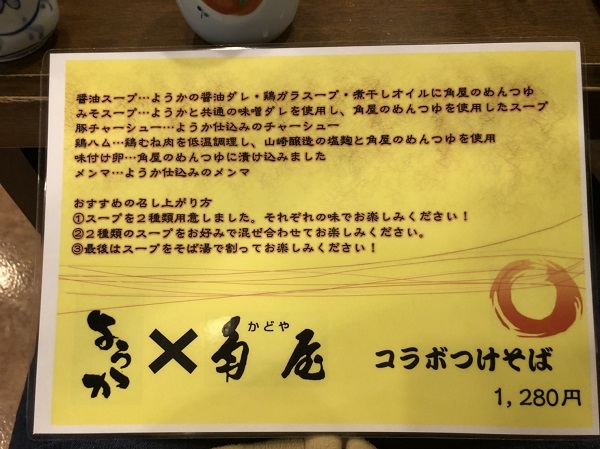 醤油スープ…ようかの醤油ダレ・鶏ガラスープ・煮干しオイルに角屋のめんつゆ
みそスープ…ようかと共通の味噌ダレを使用し、角屋のめんつゆを使用したスープ
豚チャーシュー…ようか仕込みのチャーシュー
鶏ハム…鶏むね肉を低温調理し、山崎醸造の塩麹と角屋のめんつゆを使用
味付け卵…角屋のめんつゆに漬け込みました
メンマ…ようか仕込みのメンマ
おすすめの召し上がり方
①スープを２種類用意しました。それぞれの味でお楽しみください！
②２種類のスープをお好みで混ぜ合わせてお楽しみください。
③最後はスープをそば湯で割ってお楽しみください！
ようか×角屋
かどや
コラボつけそば
1,280円